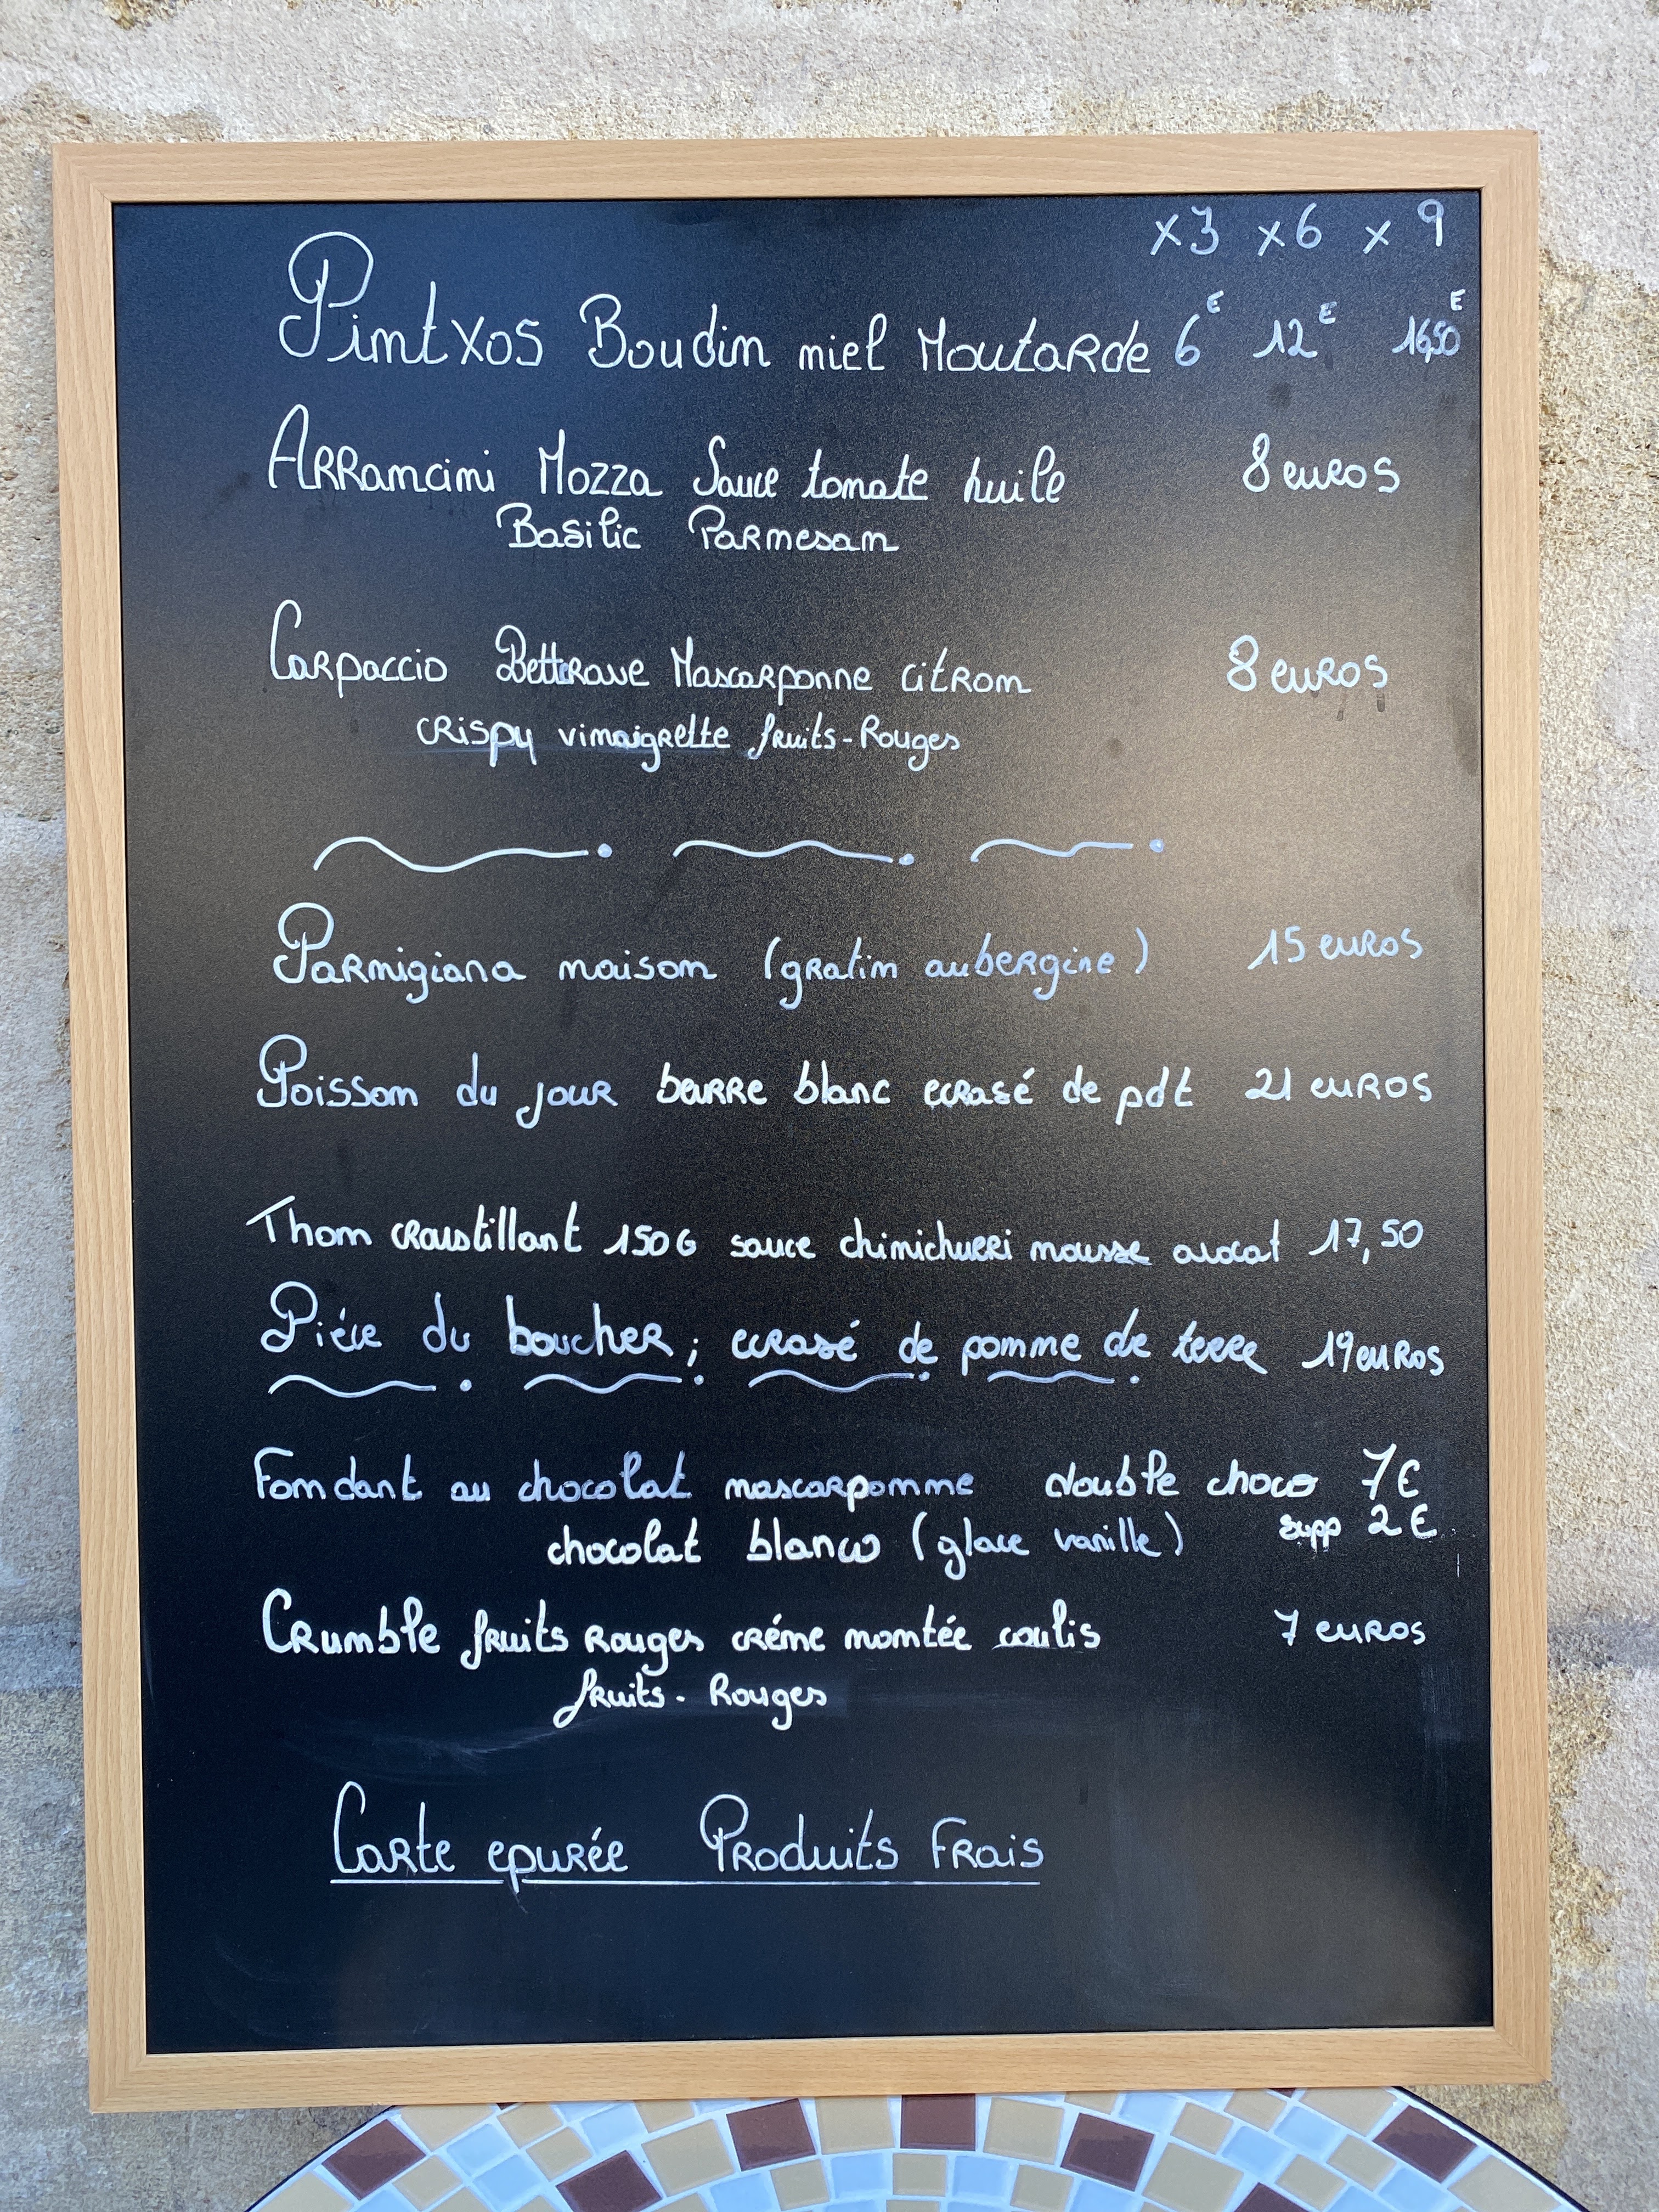 x3 x6 x9
Pintxos Boudin miel Moutarde 6€ 12€ 16,50€
Arrancini Mozza Sauce tomate huile 8 euros
Basilic Parmesan
Carpaccio Betterave Mascarponne citron 8 euros
crispy vinaigrette fruits-Rouges
Parmigiana maison (gratin aubergine) 15 euros
Poisson du jour beurre blanc ecrasé de pdt 21 euros
Thon croustillant 150G sauce chimichurri mousse avocat 17,50
Piéce du boucher ; ecrasé de pomme de terre 19 euros
Fondant au chocolat mascarponne double choco 7€
chocolat blanco (glace vanille) supp 2€
Crumble fruits Rouges créme montée coulis 7 euros
fruits-Rouges
Carte epurée Produits Frais